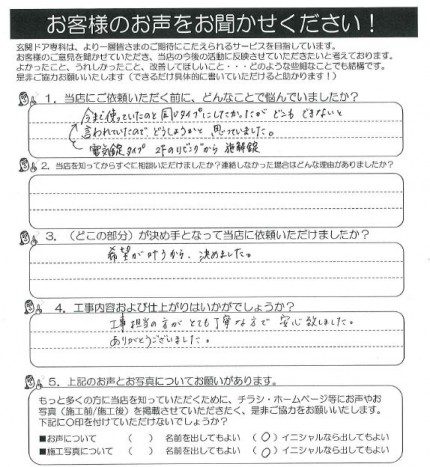 お客様のお声をお聞かせください！
玄関ドア専科は、より一層皆さまのご期待にこたえられるサービスを目指しています。
お客様のご意見を聞かせていただき、当店の今後の活動に反映させていただきたいと考えております。
よかったこと、うれしかったこと、改善してほしいこと・・・どのような些細なことでも結構です。
是非ご協力お願いいたします（できるだけ具体的に書いていただけると助かります！）
1．当店にご依頼いただく前に、どんなことで悩んでいましたか？
今まで使っていたのと同じタイプにしたかったが どこも できないと
言われていたので、どうしようかと 思っていました。
電気錠タイプ 2Fのリビングから 施解錠
2．当店を知ってからすぐに相談いただけましたか？連絡しなかった場合はどんな理由がありましたか？
3．（どこの部分）が決め手となって当店に依頼いただけましたか？
希望が叶うから、決めました。
4．工事内容および仕上がりはいかがでしょうか？
工事担当の方が とても丁寧な方で 安心致しました。
ありがとうございました。
5．上記のお声とお写真についてお願いがあります。
もっと多くの方に当店を知っていただくために、チラシ・ホームページ等にお声やお
写真（施工前/施工後）を掲載させていただきたく、是非ご協力をお願いいたします。
下記に〇印を付けていただけないでしょうか？
■お声について （ ） 名前を出してもよい （〇）イニシャルなら出してもよい
■施工写真について （ ） 名前を出してもよい （〇）イニシャルなら出してもよい